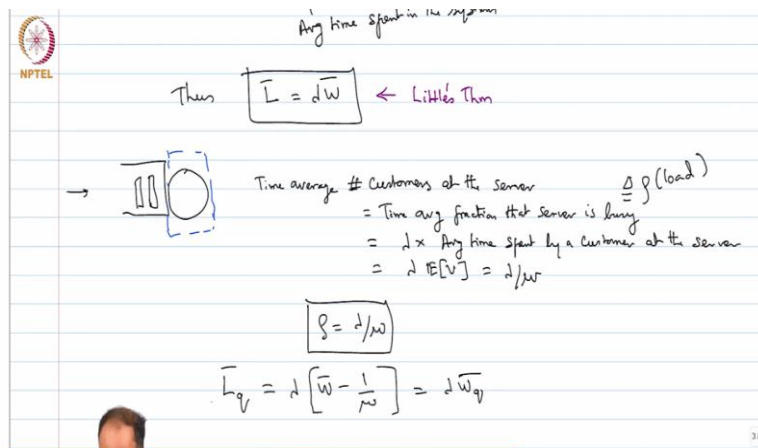 Avg time spent in the system
NPTEL
Thus L̅ = λW̅ ← Little's Thm
→ Time average # Customers at the server
= Time avg fraction that server is busy ≜ ρ (load)
= λ × Avg time spent by a customer at the server
= λ E[V] = λ/μ
ρ = λ/μ
L̅q = λ [W̅ - 1/μ] = λ W̅q